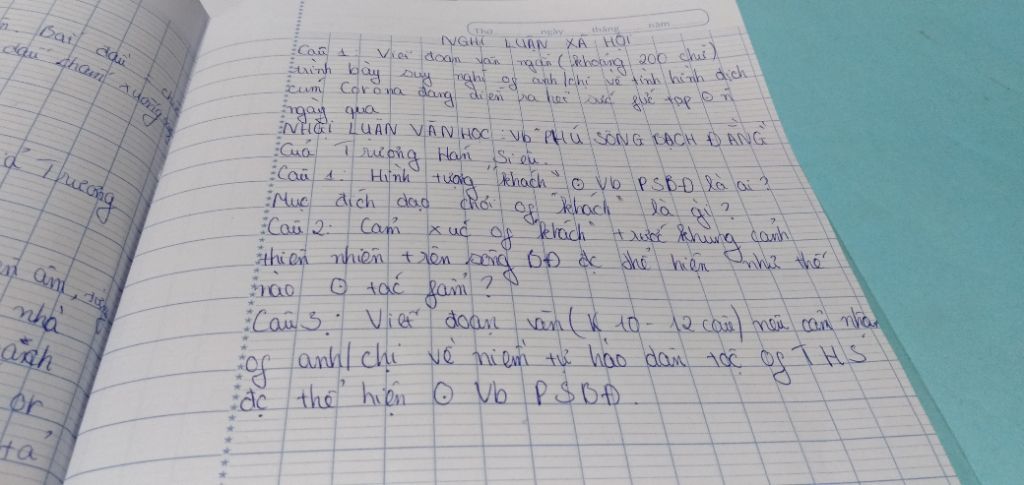 n. Bài đầu
dấu chấm
xuống
ả Trương
nhà
ách
or
tả
Thứ ngày tháng năm
NGHỊ LUẬN XÃ HỘI
Câu 1. Viết đoạn văn ngắn (khoảng 200 chữ)
trình bày suy nghĩ of anh/chị về tình hình dịch
cúm Corona đang diễn ra
ngày qua
NHGỊ LUẬN VĂN HỌC: Vb "PHÚ SÔNG BẠCH ĐẰNG"
Của Trương Hán Siêu.
Câu 1: Hình tượng "khách" ⊙ Vb PSBĐ là ai?
Mục đích dạo chơi of "khách" là gì?
Câu 2: Cảm xúc of "khách" trước khung cảnh
thiên nhiên trên sông BĐ đc thể hiện như thế
nào ⊙ tác phẩm?
Câu 3: Viết đoạn văn (K 10-12 câu) nêu cảm nhận
of anh/chị về niềm tự hào dân tộc of THS
đc thể hiện ⊙ Vb PSBĐ.